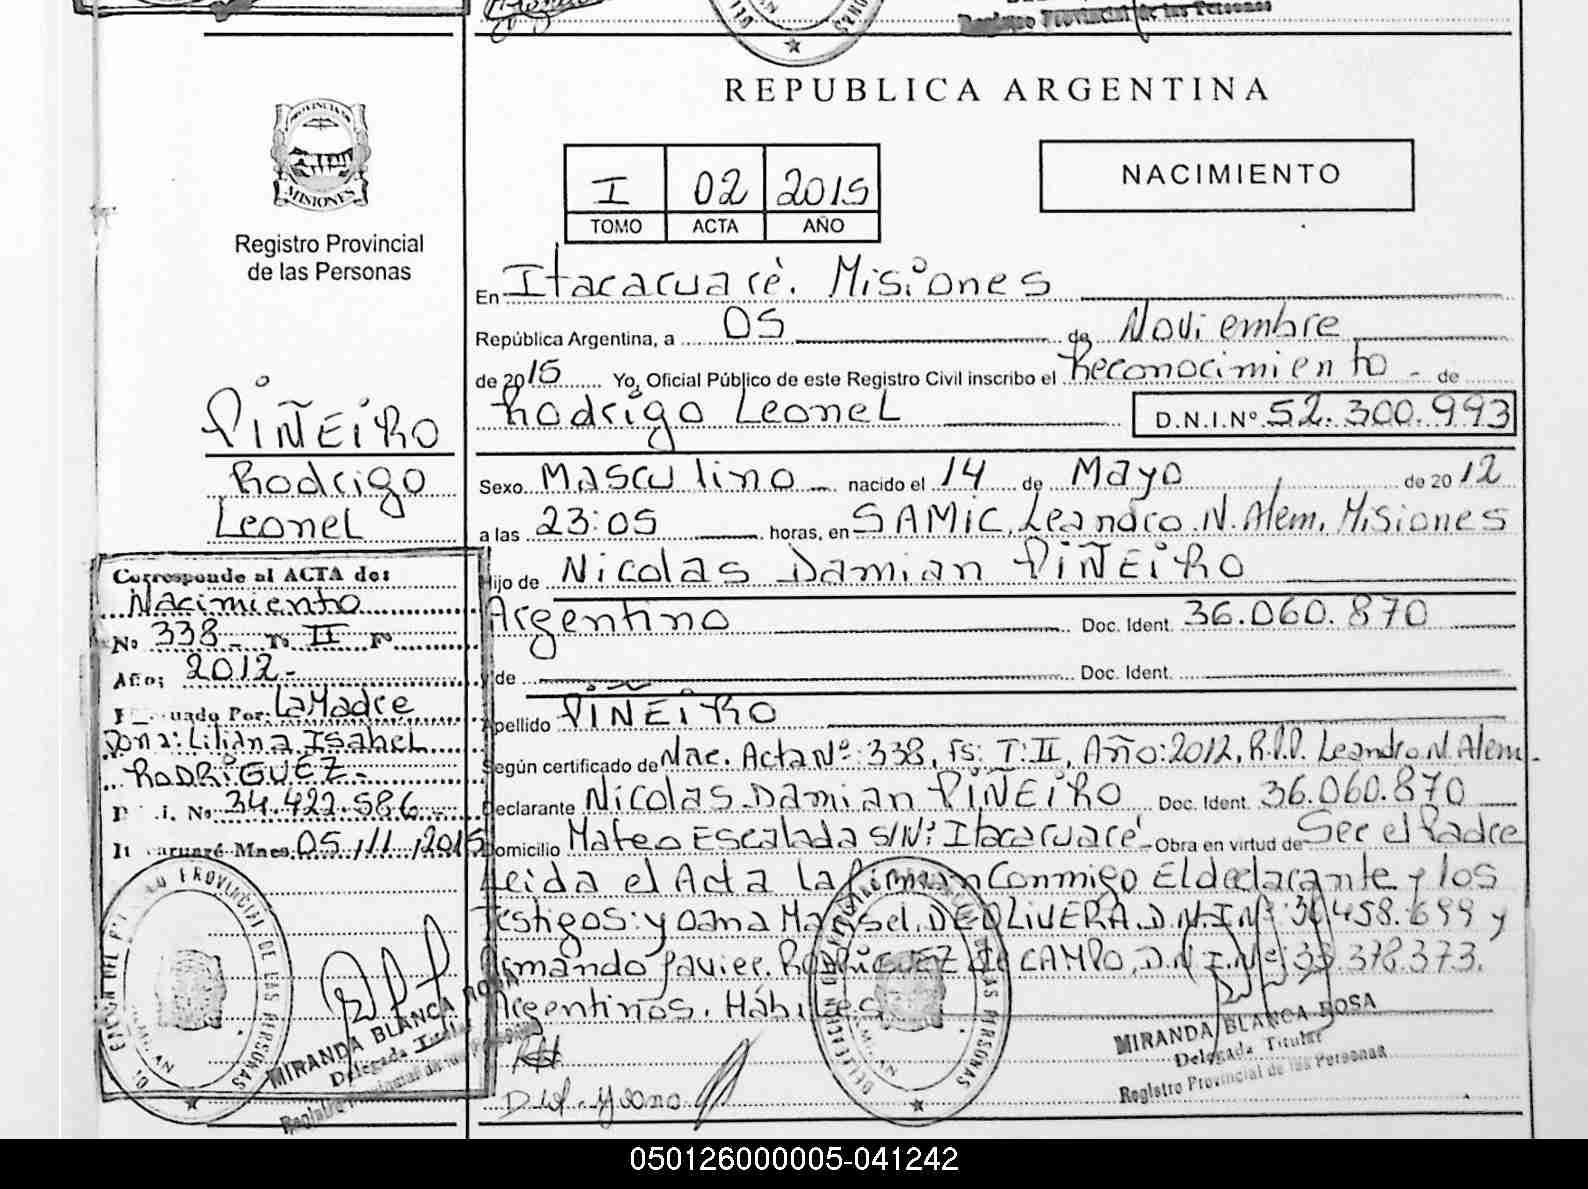 Registro Provincial de las Personas
REPUBLICA ARGENTINA
PROVINCIA DE
MISIONES
Registro Provincial
de las Personas
I 02 2015
TOMO ACTA AÑO
NACIMIENTO
PIÑEiRO
Rodrigo
Leonel
En Itacaruaré. Misiones
República Argentina, a 05 de Noviembre
de 2015 Yo, Oficial Público de este Registro Civil inscribo el Reconocimiento - de
Rodrigo Leonel D.N.I.Nº 52.300.993
Sexo Masculino nacido el 14 de Mayo de 2012
a las 23:05 horas, en SAMIC. Leandro N. Alem. Misiones
Hijo de Nicolas Damian PIÑEiRO
Argentino Doc. Ident. 36.060.870
y de Doc. Ident.
Apellido PIÑEiRO
Según certificado de Nac. Acta Nº: 338, Tº: II, Año: 2012, R.P.P. Leandro N. Alem.
Declarante Nicolas Damian PIÑEiRO Doc. Ident. 36.060.870
Domicilio Mateo Escalada S/Nº: Itacaruaré - Obra en virtud de Ser el Padre
Leida el Acta La firman Conmigo El declarante y los
Testigos: Yoana Marisel, DE OLIVERA, D.N.I.Nº: 36.458.699 y
Armando Javier. RODRIGUEZ do CAMPO, D.N.I.Nº: 33.378.373.
Argentinos. Hábiles
Corresponde al ACTA de:
Nacimiento
Nº 338 - Tº II Fº
Año: 2012 -
Por: La Madre
Dona: Liliana Isabel
RODRiGUEZ -
Nº 34.422.586
Mnes. 05/11/2015
MIRANDA BLANCA ROSA
Delegada Titular
Registro Provincial de las Personas
MIRANDA BLANCA ROSA
Delegada Titular
Registro Provincial de las Personas
050126000005-041242